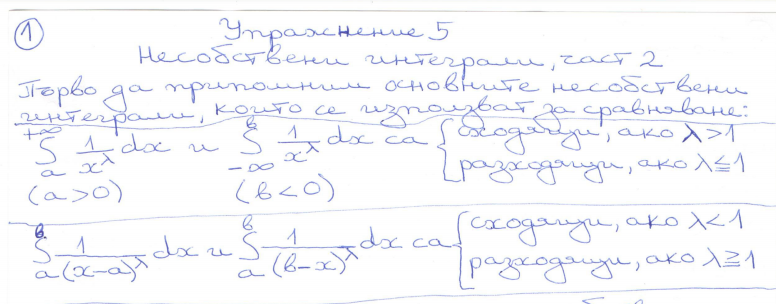 ① Упражнение 5
Несобствени интеграли, част 2
Първо да припомним основните несобствени
интеграли, които се използват за сравняване:
∫_a^{+∞} 1/x^λ dx и ∫_{-∞}^в 1/x^λ dx са { сходящи, ако λ>1
разходящи, ако λ≦1
(a>0) (в<0)
∫_a^в 1/(x-a)^λ dx и ∫_a^в 1/(в-x)^λ dx са { сходящи, ако λ<1
разходящи, ако λ≧1